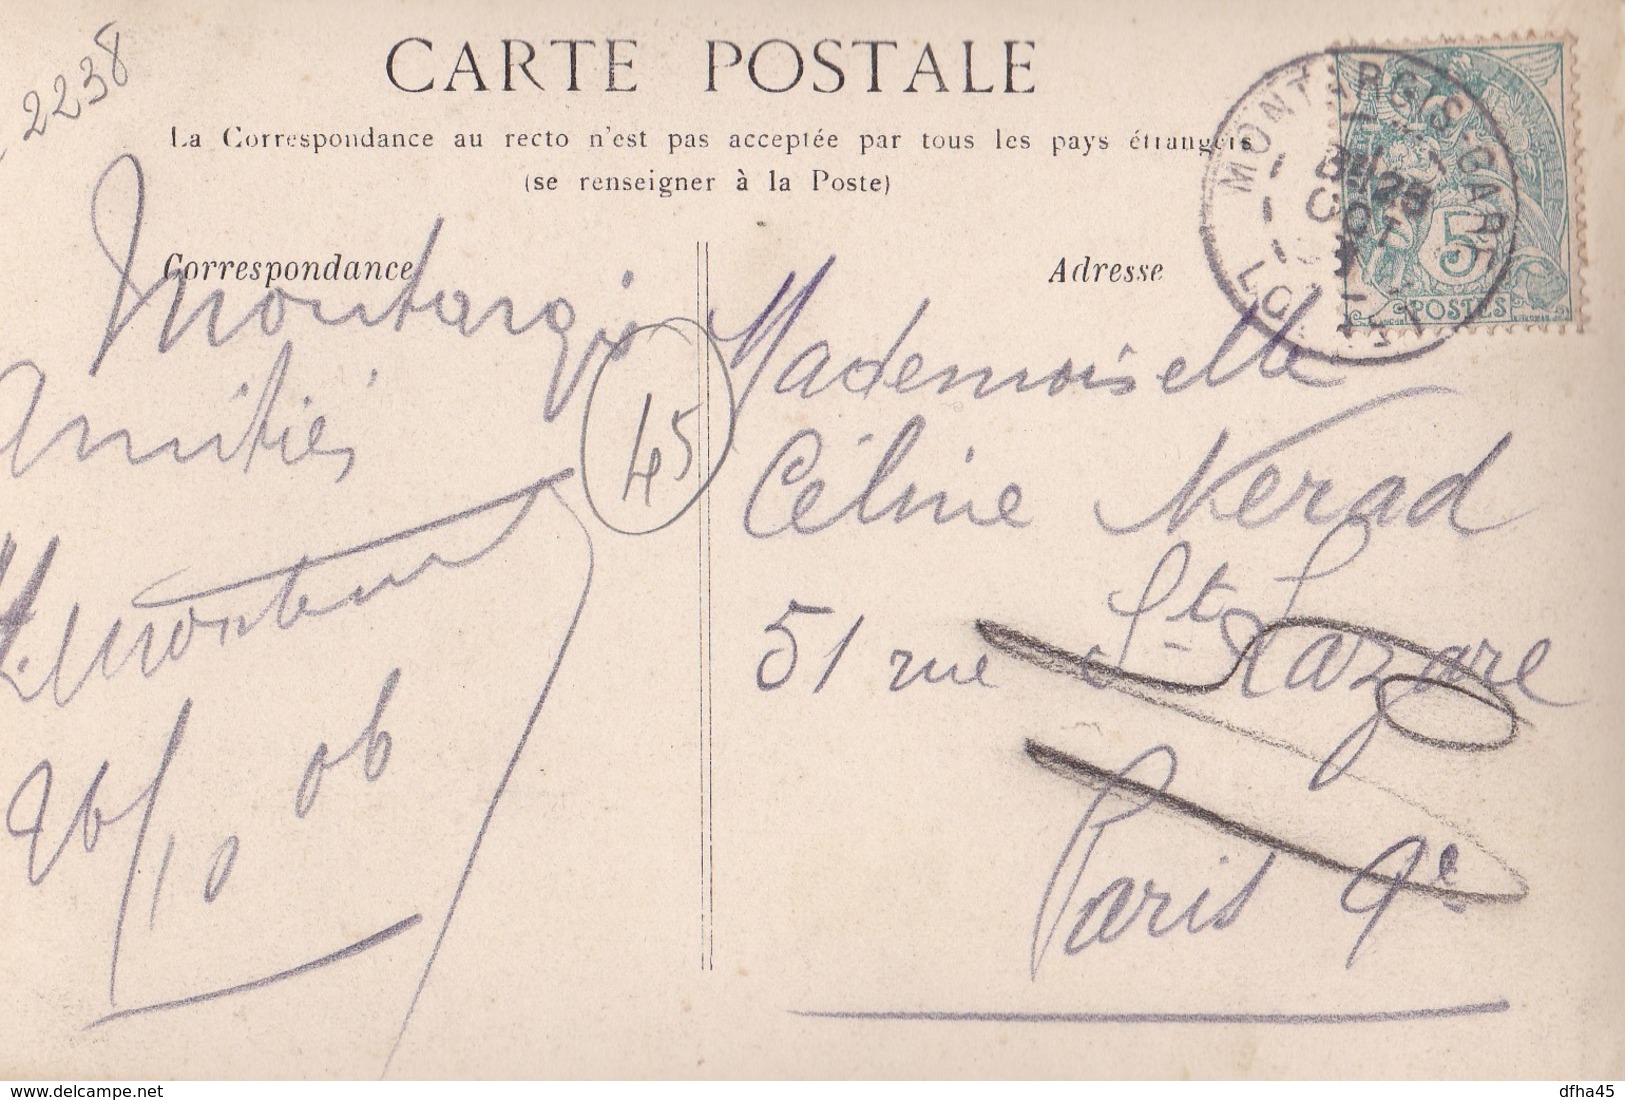 2238
CARTE POSTALE
La Correspondance au recto n'est pas acceptée par tous les pays étrangers
(se renseigner à la Poste)
Correspondance
Adresse
MONTARGIS-GARE
25
OCT
LOIRET
5
POSTES
Montargis
Amitiés
26/10 06
45
Mademoiselle
Céline Nerad
51 rue St Lazare
Paris 9e
delcampe.net
dfha45